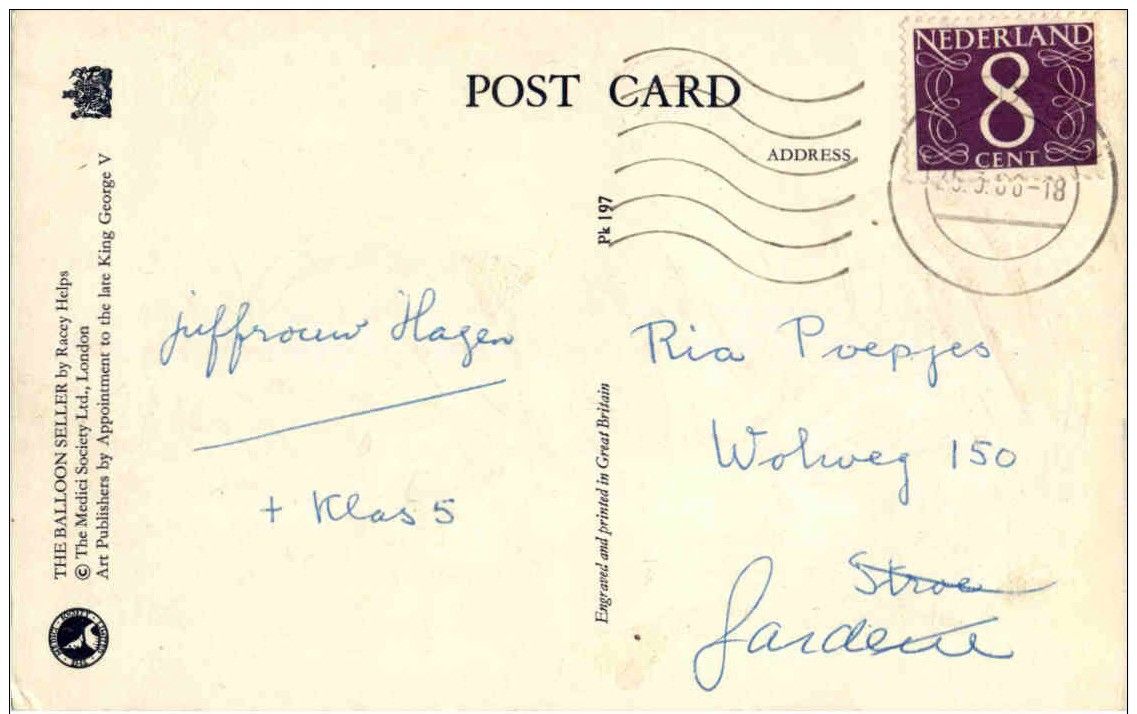 POST CARD
ADDRESS
NEDERLAND
8
CENT
THE BALLOON SELLER by Racey Helps
© The Medici Society Ltd., London
Art Publishers by Appointment to the late King George V
Pk 197
Engraved and printed in Great Britain
juffrouw Hagen
+ Klas 5
Ria Poepjes
Wolweg 150
Stroe
Garderen